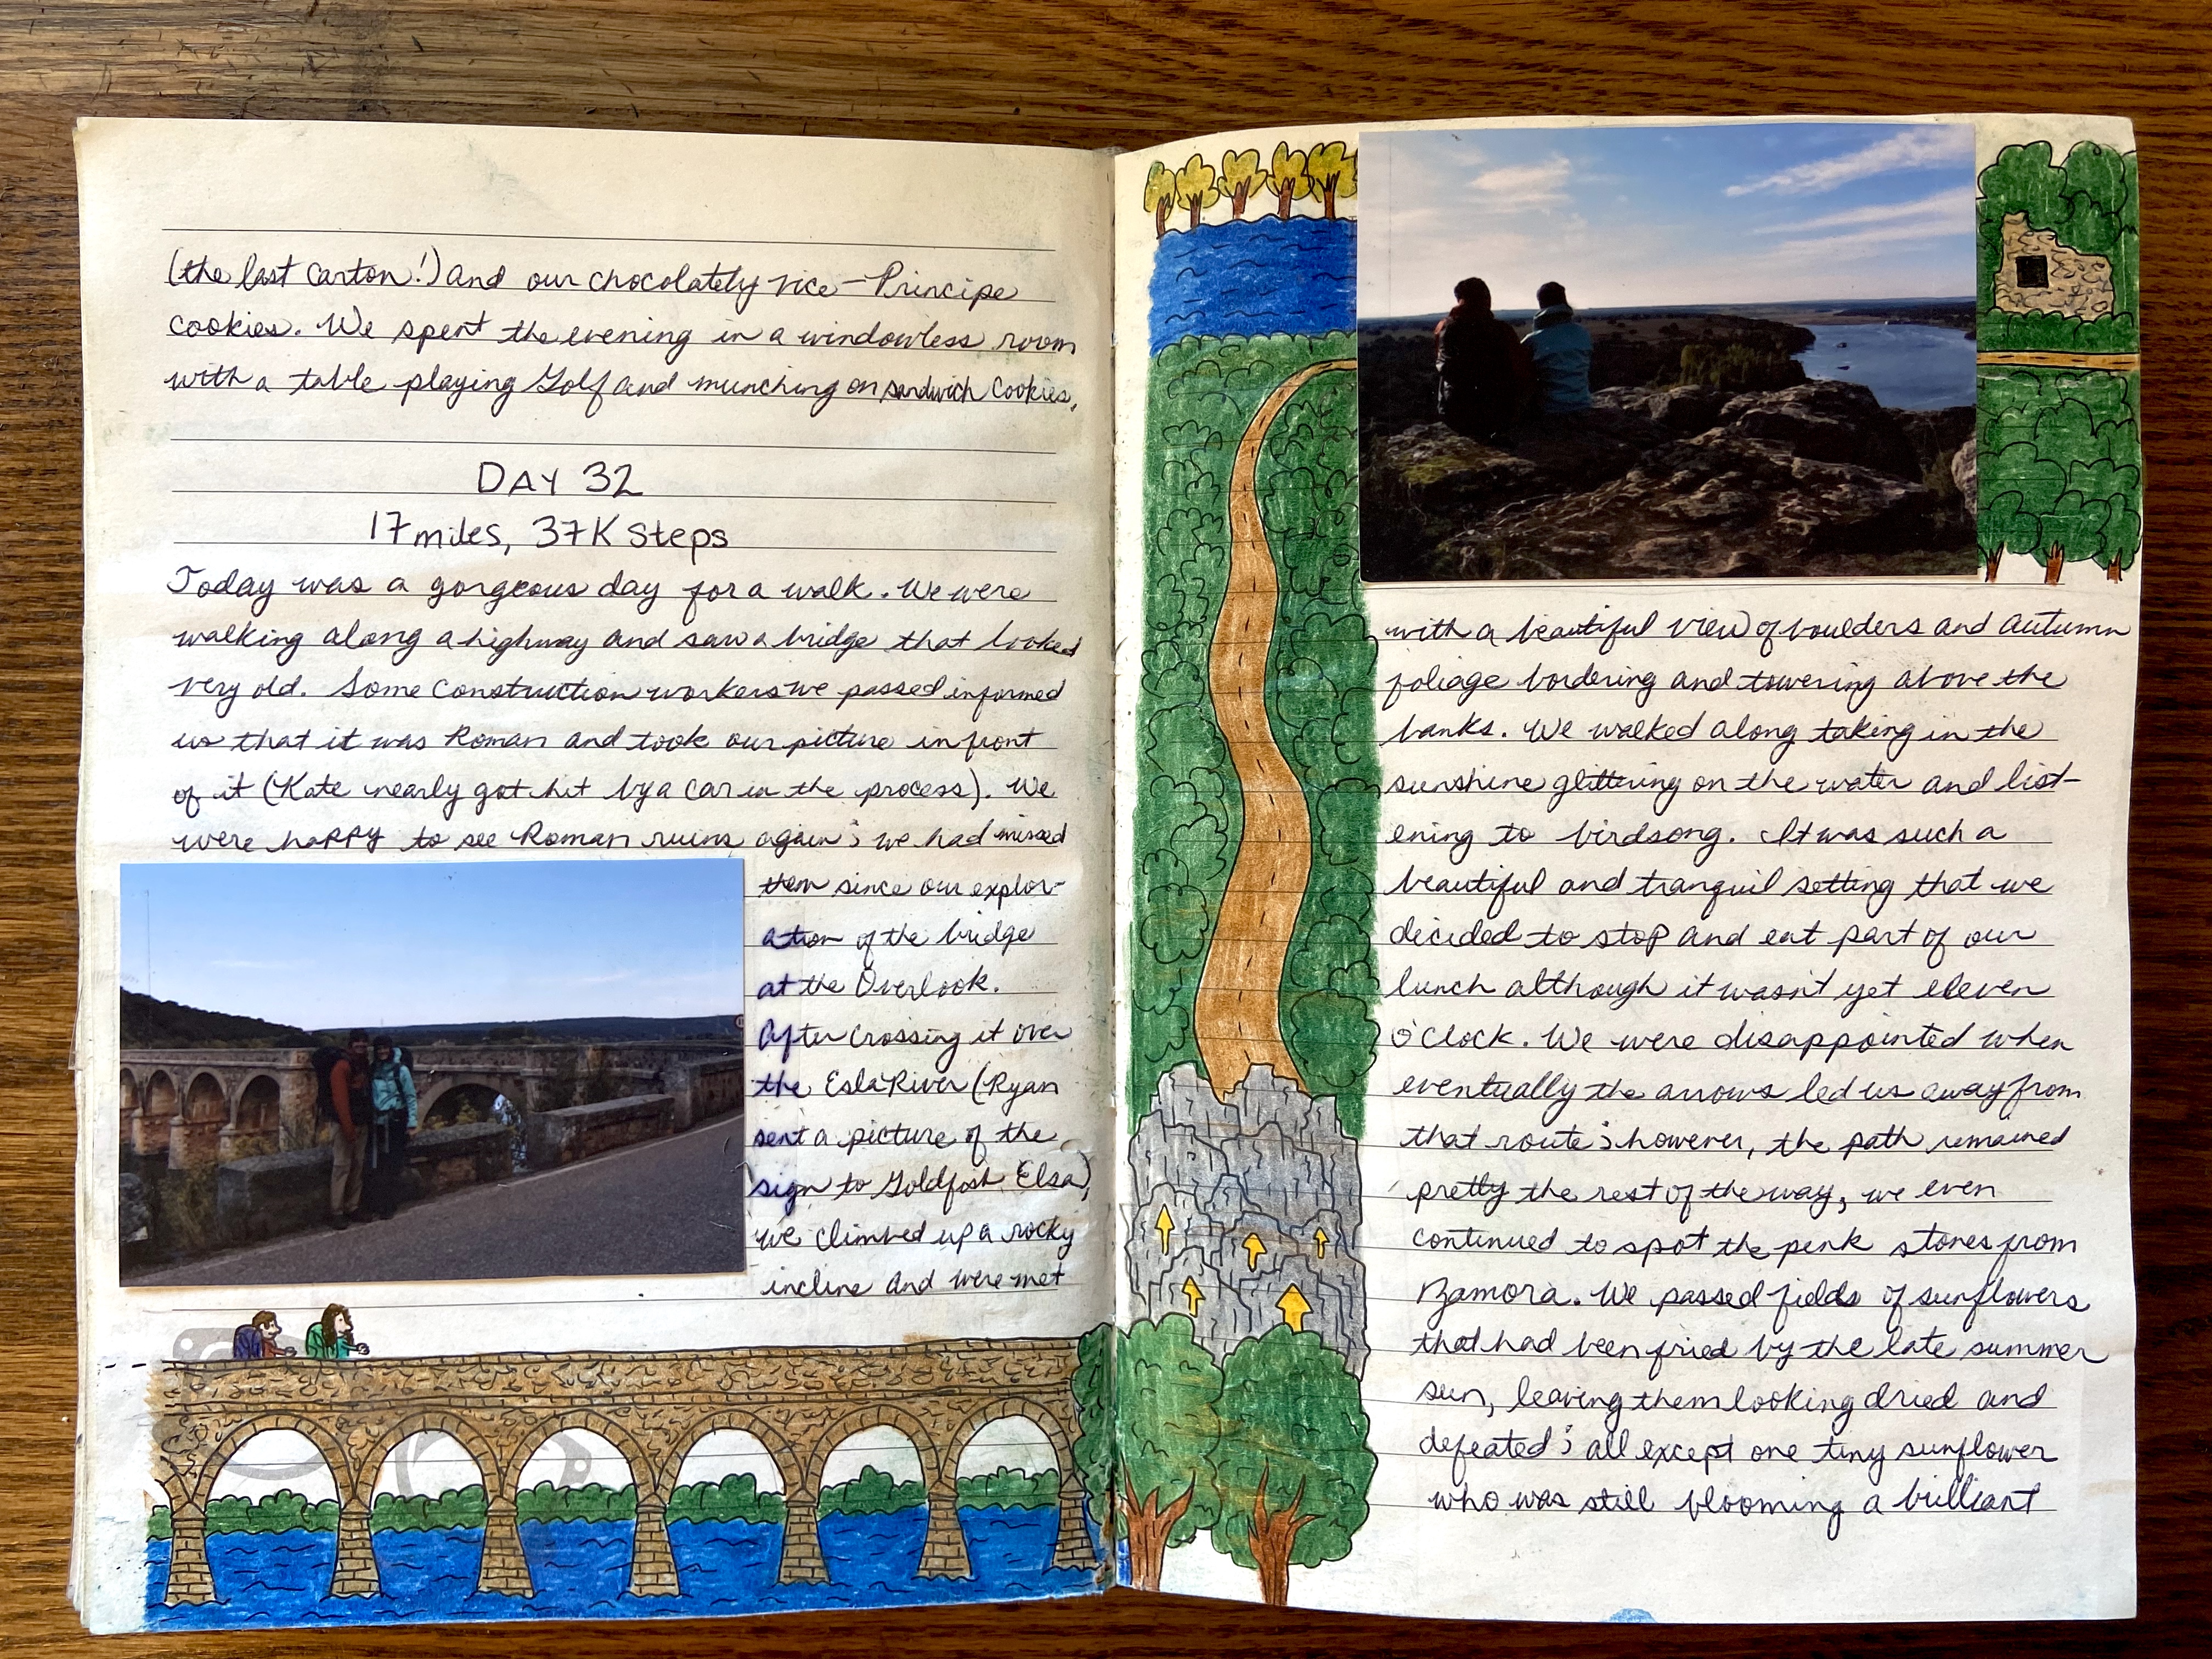 (the last carton!) and our chocolately vice—Principe
cookies. We spent the evening in a windowless room
with a table playing Golf and munching on sandwich cookies.
DAY 32
17 miles, 37K Steps
Today was a gorgeous day for a walk. We were
walking along a highway and saw a bridge that looked
very old. Some construction workers we passed informed
us that it was Roman and took our picture in front
of it (Kate nearly got hit by a car in the process). We
were happy to see Roman ruins again; we had missed
them since our explor-
ation of the bridge
at the Overlook.
After crossing it over
the Esla River (Ryan
sent a picture of the
sign to Goldfish Elsa),
we climbed up a rocky
incline and were met
with a beautiful view of boulders and Autumn
foliage bordering and towering above the
banks. We walked along taking in the
sunshine glittering on the water and list-
ening to birdsong. It was such a
beautiful and tranquil setting that we
decided to stop and eat part of our
lunch although it wasn't yet eleven
o'clock. We were disappointed when
eventually the arrows led us away from
that route; however, the path remained
pretty the rest of the way, we even
continued to spot the pink stones from
Zamora. We passed fields of sunflowers
that had been fried by the late summer
sun, leaving them looking dried and
defeated; all except one tiny sunflower
who was still blooming a brilliant